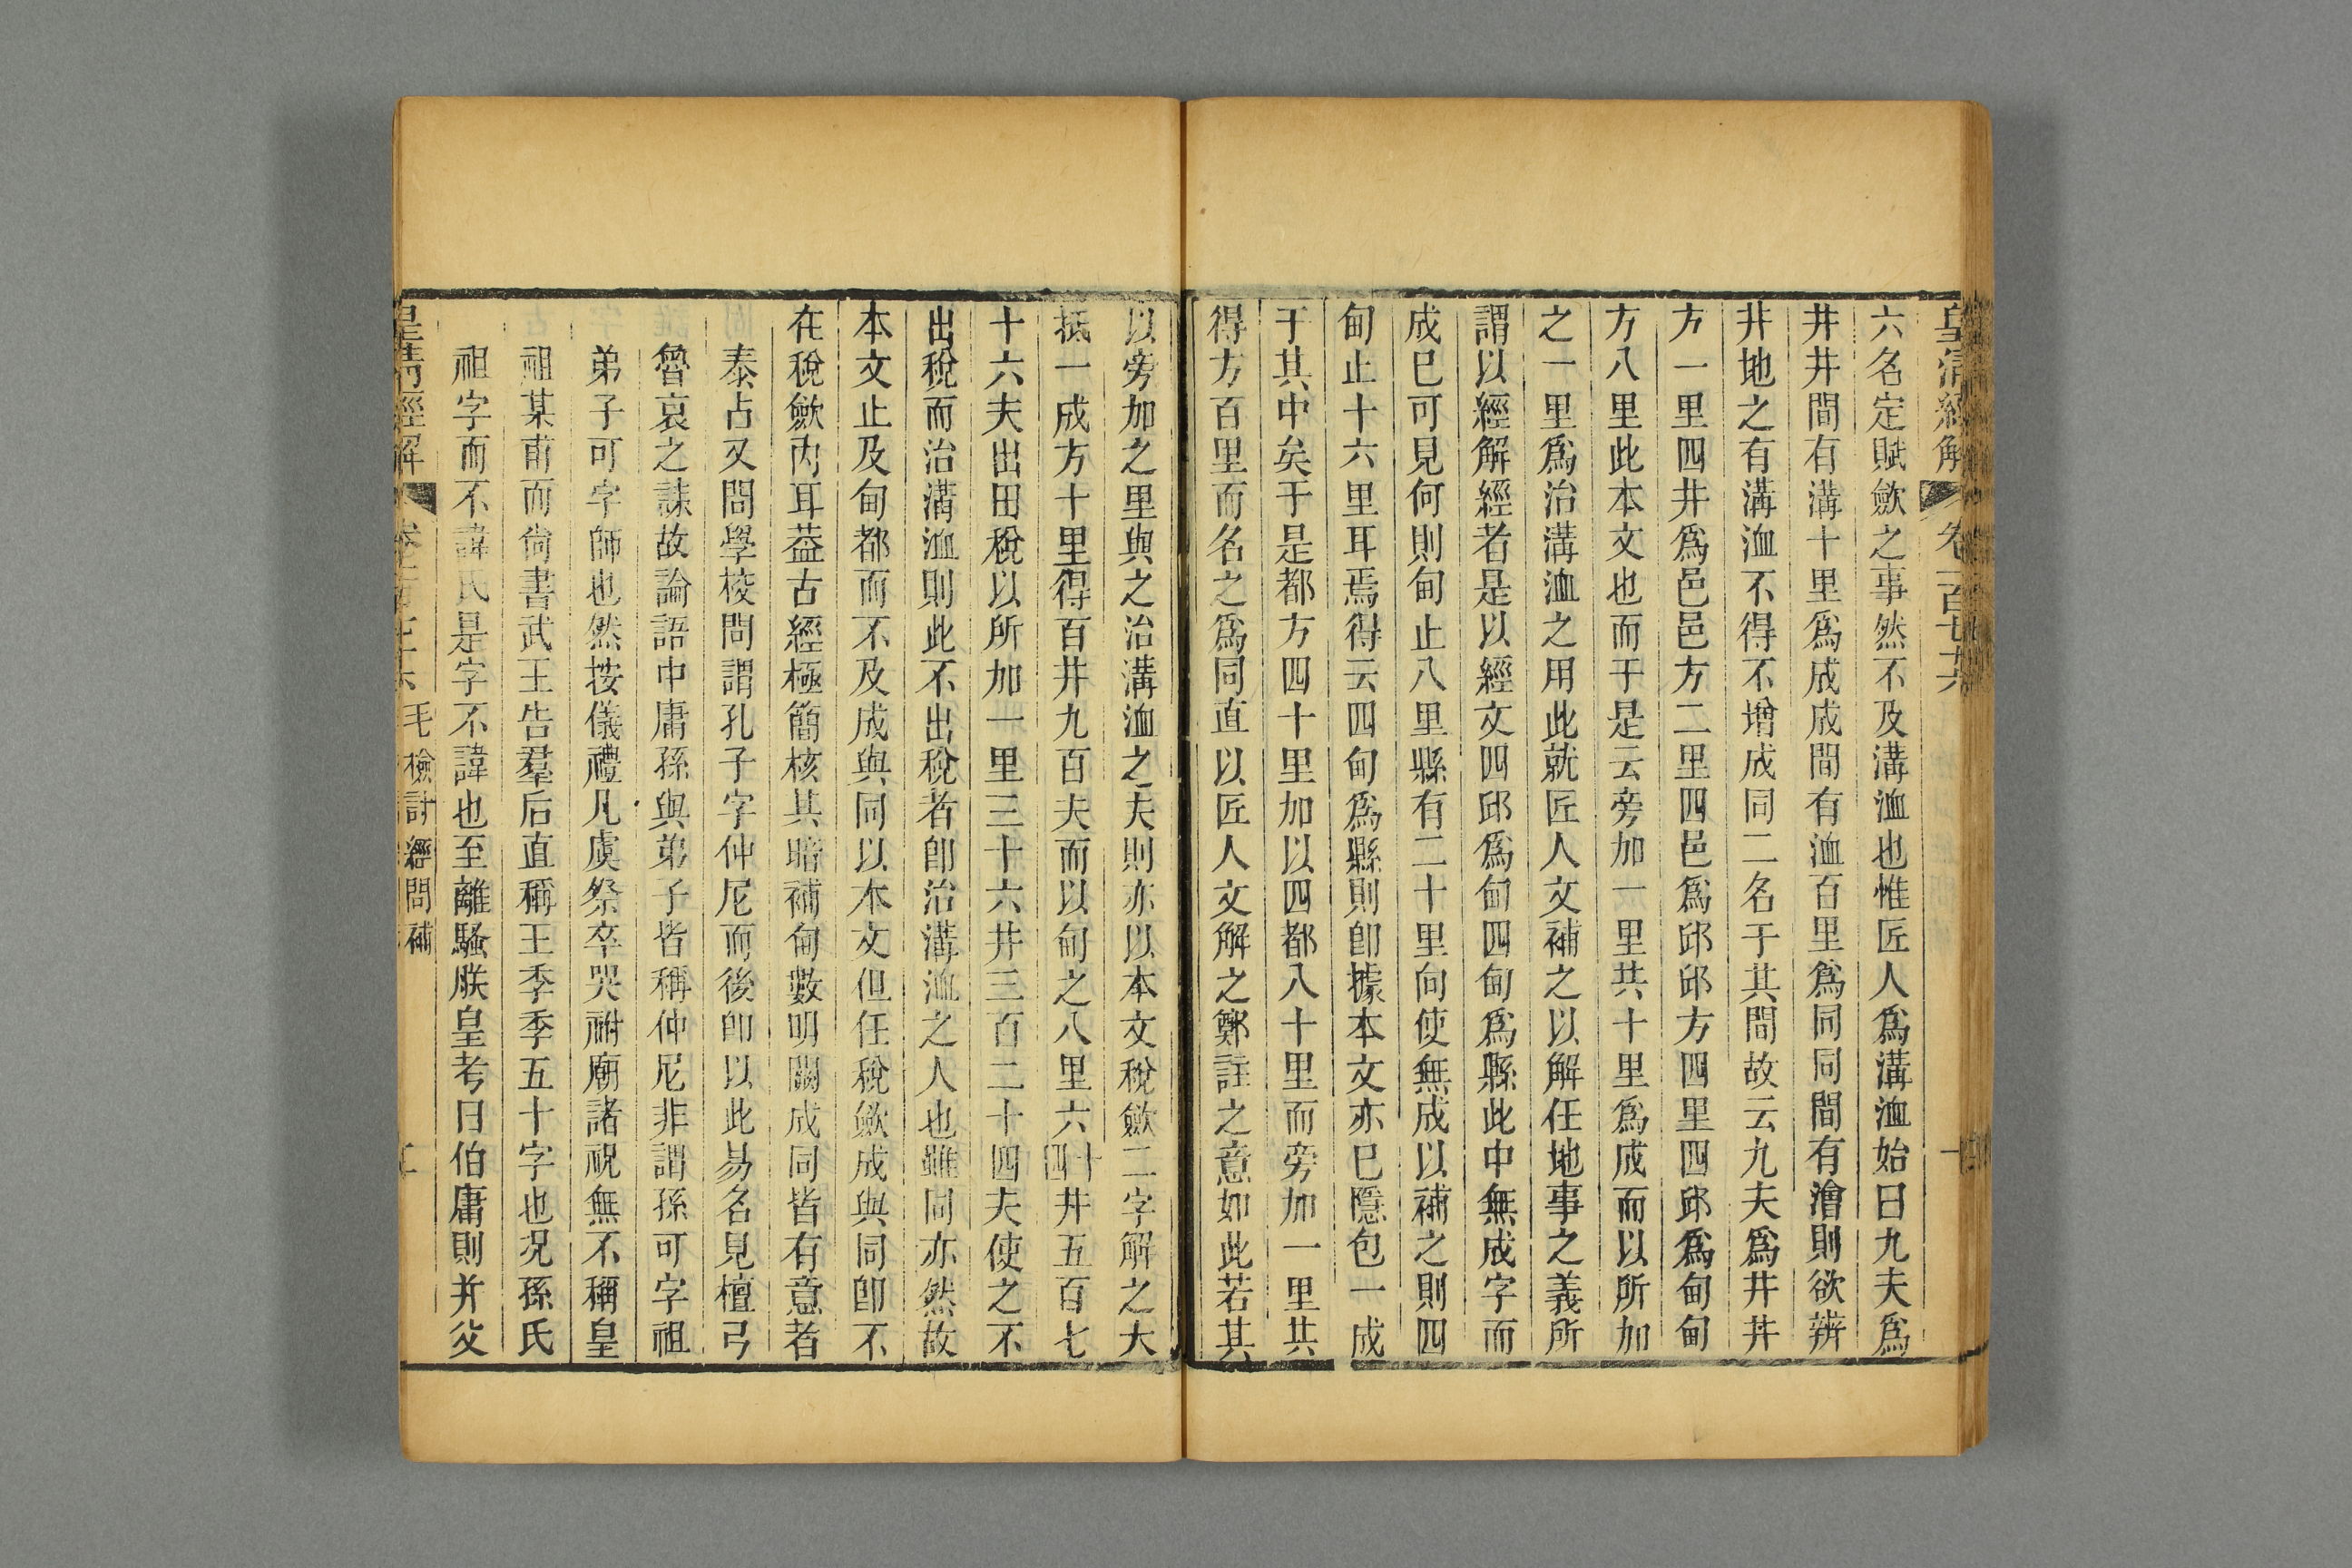 皇清經解 卷一百七十六 一
六名定賦斂之事然不及溝洫也惟匠人爲溝洫始曰九夫爲
井井間有溝十里爲成成間有洫百里爲同同間有澮則欲辨
井地之有溝洫不得不增成同二名于其間故云九夫爲井井
方一里四井爲邑邑方二里四邑爲邱邱方四里四邱爲甸甸
方八里此本文也而于是云旁加一里共十里爲成而以所加
之一里爲治溝洫之用此就匠人文補之以解任地事之義所
謂以經解經者是以經文四邱爲甸四甸爲縣此中無成字而
成已可見何則甸止八里縣有二十里向使無成以補之則四
甸止十六里耳焉得云四甸爲縣則卽據本文亦已隱包一成
于其中矣于是都方四十里加以四都八十里而旁加一里共
得方百里而名之爲同直以匠人文解之鄭註之意如此若其
以旁加之里與之治溝洫之夫則亦以本文稅斂二字解之大
抵一成方十里得百井九百夫而以甸之八里六十四井五百七
十六夫出田稅以所加一里三十六井三百二十四夫使之不
出稅而治溝洫則此不出稅者卽治溝洫之人也雖同亦然故
本文止及甸都而不及成與同以本文但任稅斂成與同卽不
在稅斂內耳葢古經極簡核其暗補甸數明關成同皆有意者
泰占又問學校問謂孔子字仲尼而後卽以此易名見檀弓
魯哀之誄故論語中庸孫與弟子皆稱仲尼非謂孫可字祖
弟子可字師也然按儀禮凡虞祭卒哭祔廟諸祝無不稱皇
祖某甫而尙書武王告羣后直稱王季季五十字也況孫氏
祖字而不諱氏是字不諱也至離騷朕皇考曰伯庸則幷父
皇清經解 毛檢討經問補 二